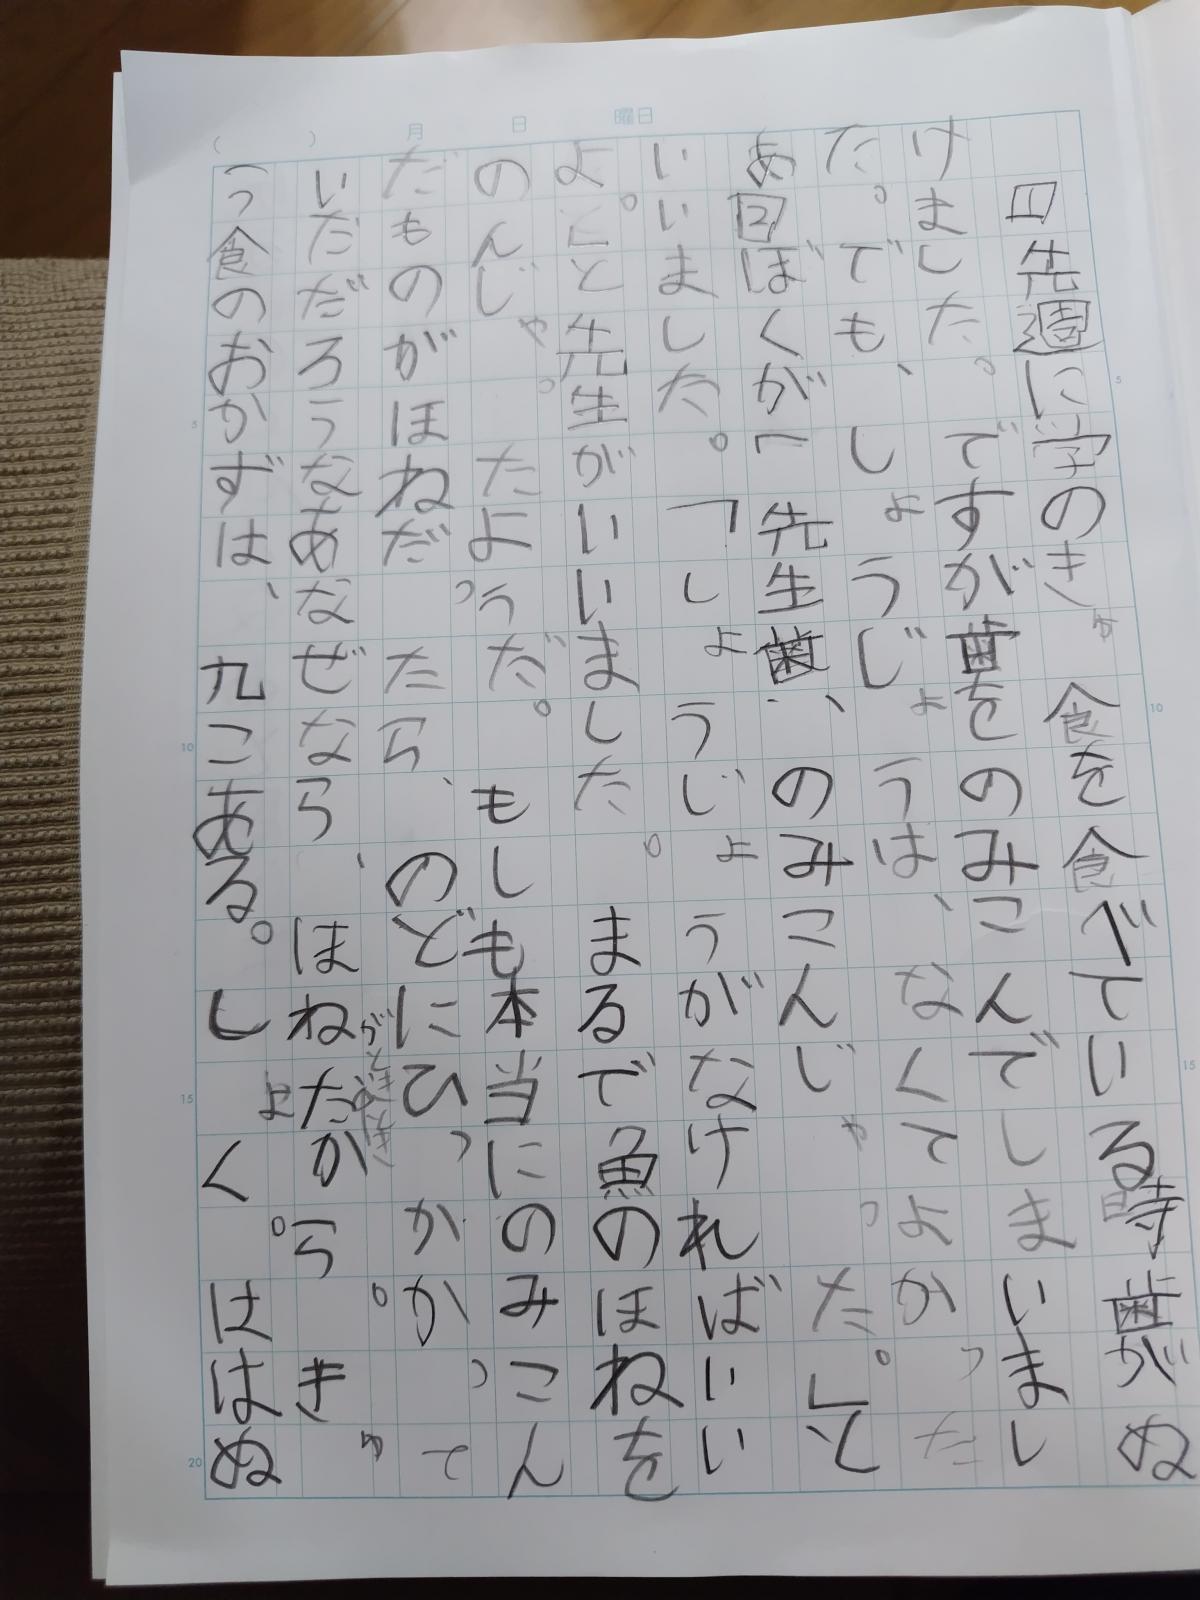 先週に学のきゅ食を食べている時歯がぬ
けました。ですが歯をのみこんでしまいまし
た。でも、しょうじょうは、なくてよかった
あ回ぼくが「先生歯、のみこんじゃった。」と
いいました。「しょうじょうがなければいい
よ。」と先生がいいました。まるで魚のほねを
のんじゃったようだ。もしも本当にのみこん
だものがほねだったら、のどにひっかかって
いだだろうなあなぜなら、ほねだから。きゅ
う食のおかずは、九こある。しょく。ははぬ